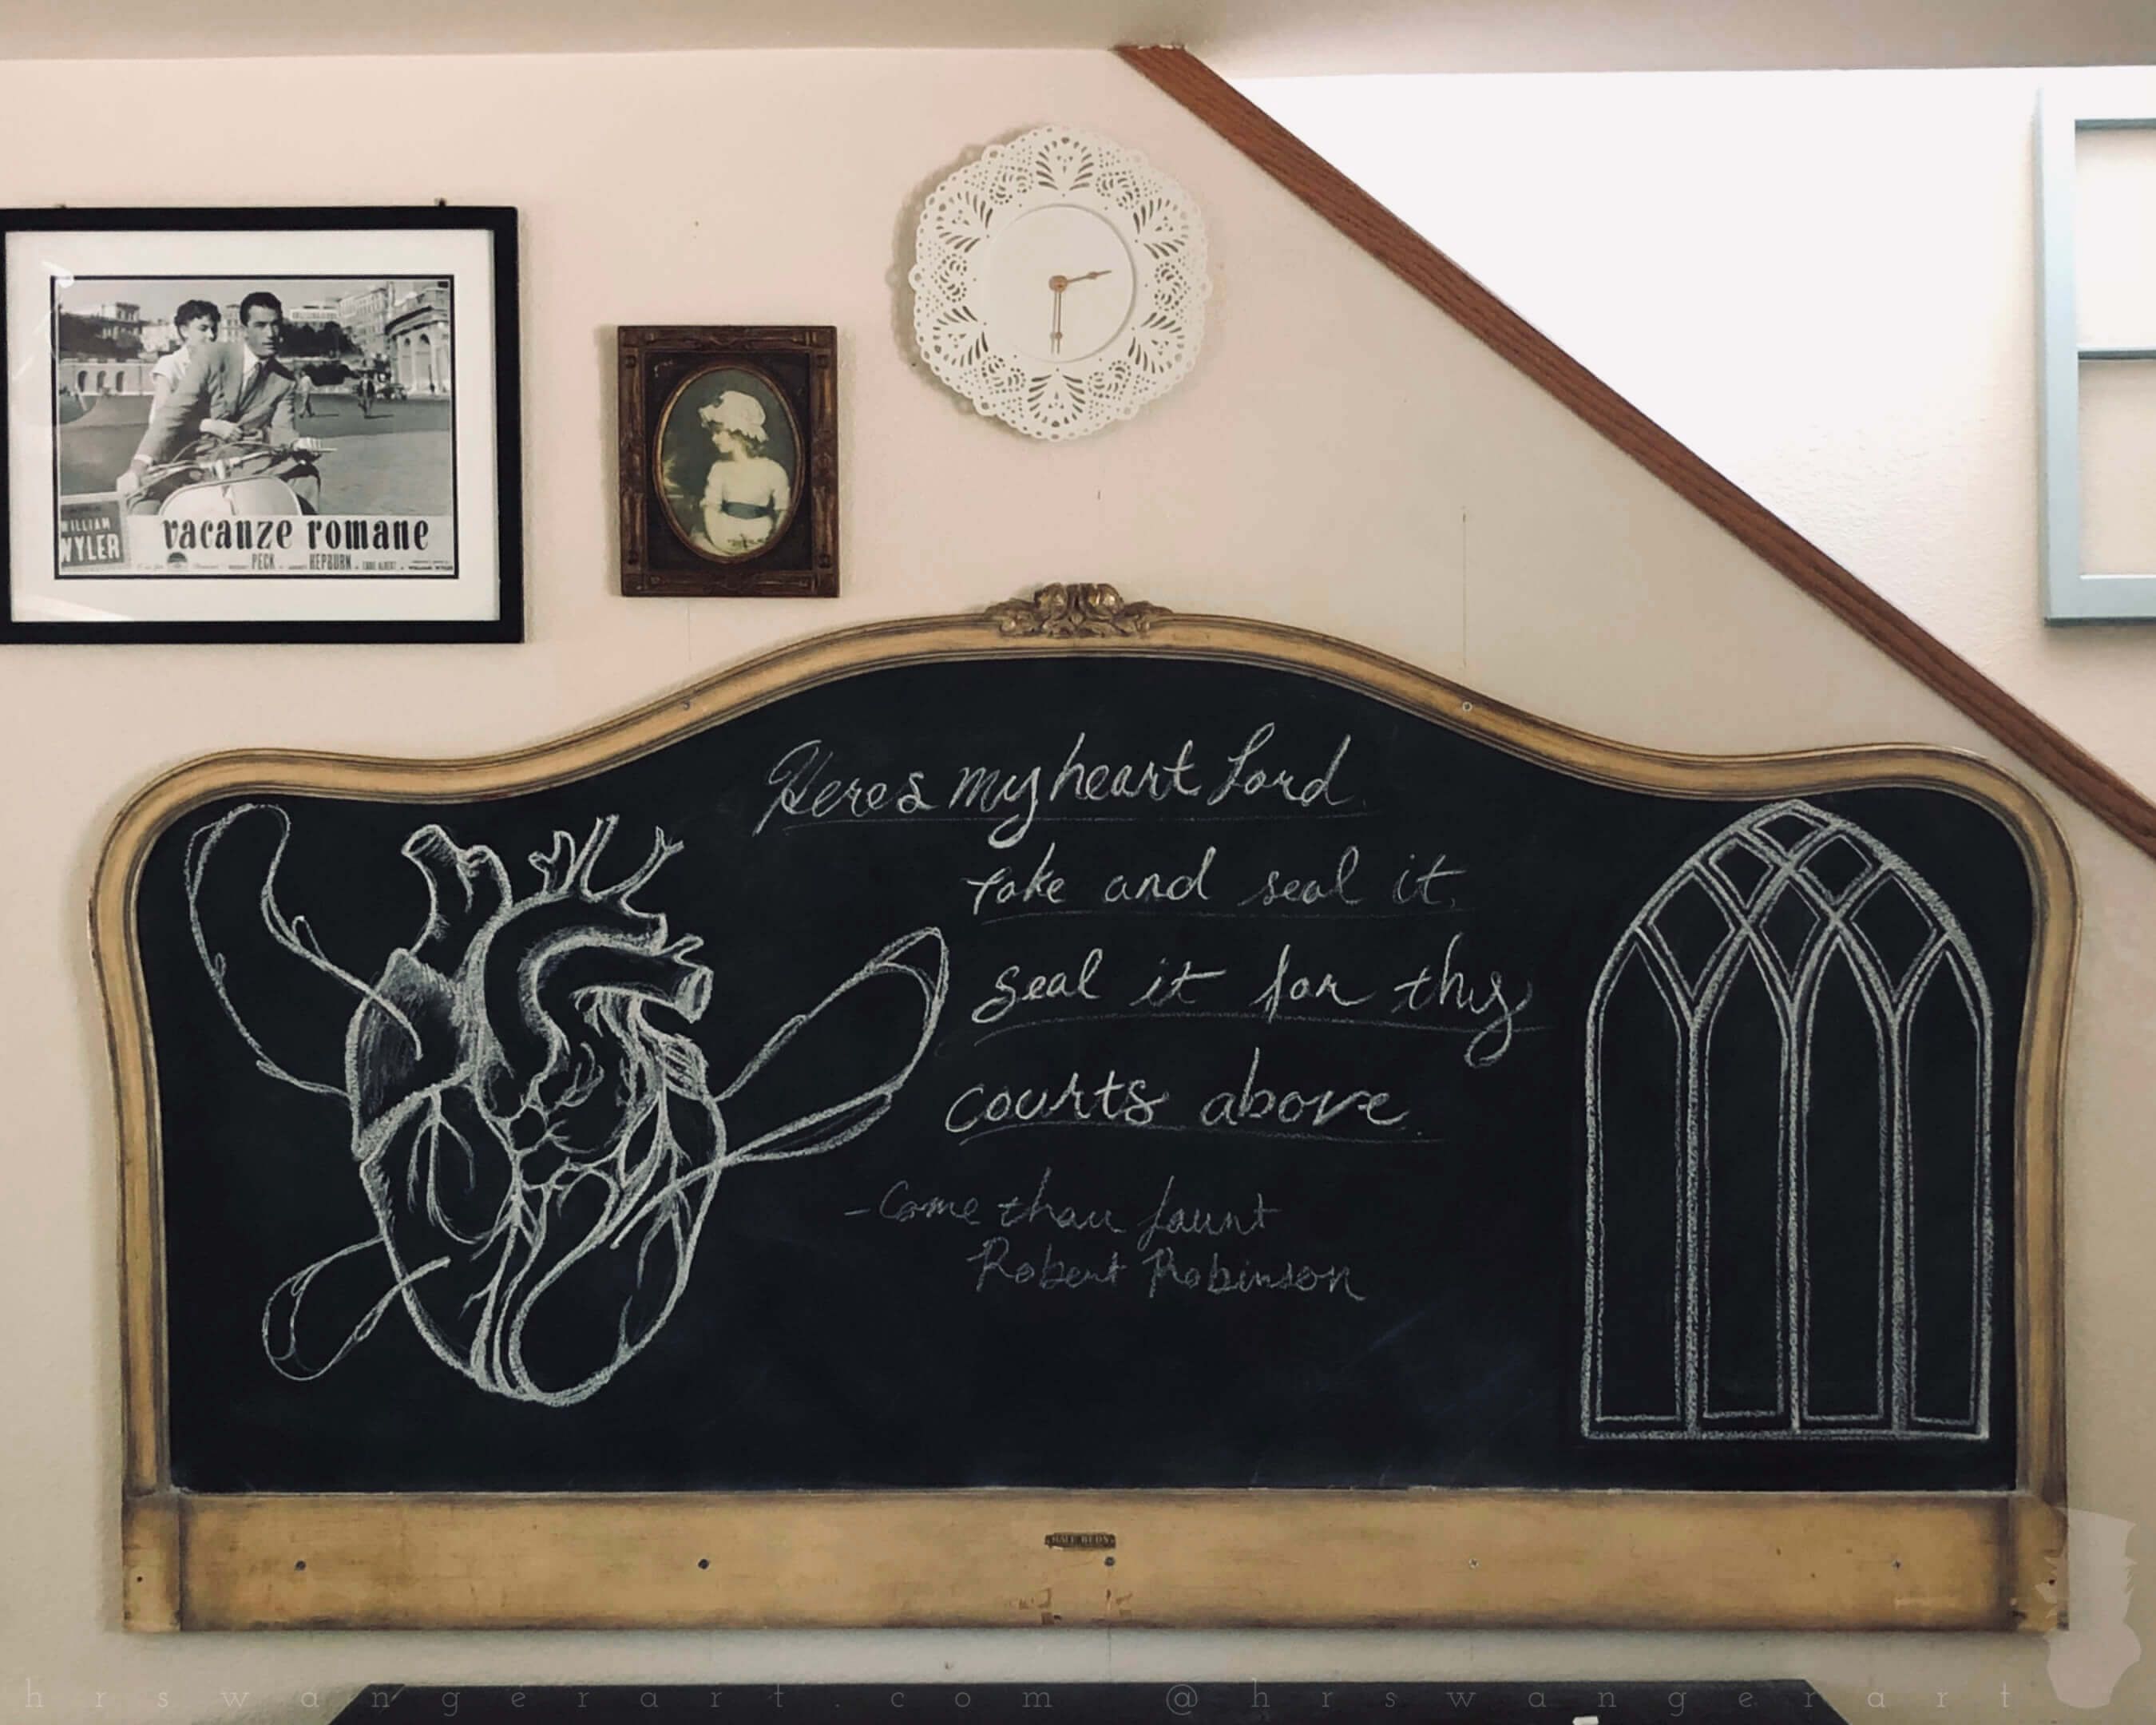 WILLIAM
WYLER
vacanze romane
PECK HEPBURN
Heres my heart Lord
Take and seal it
seal it for thy
courts above.
-Come thou fount
Robert Robinson
hrswangerart.com @hrswangerart